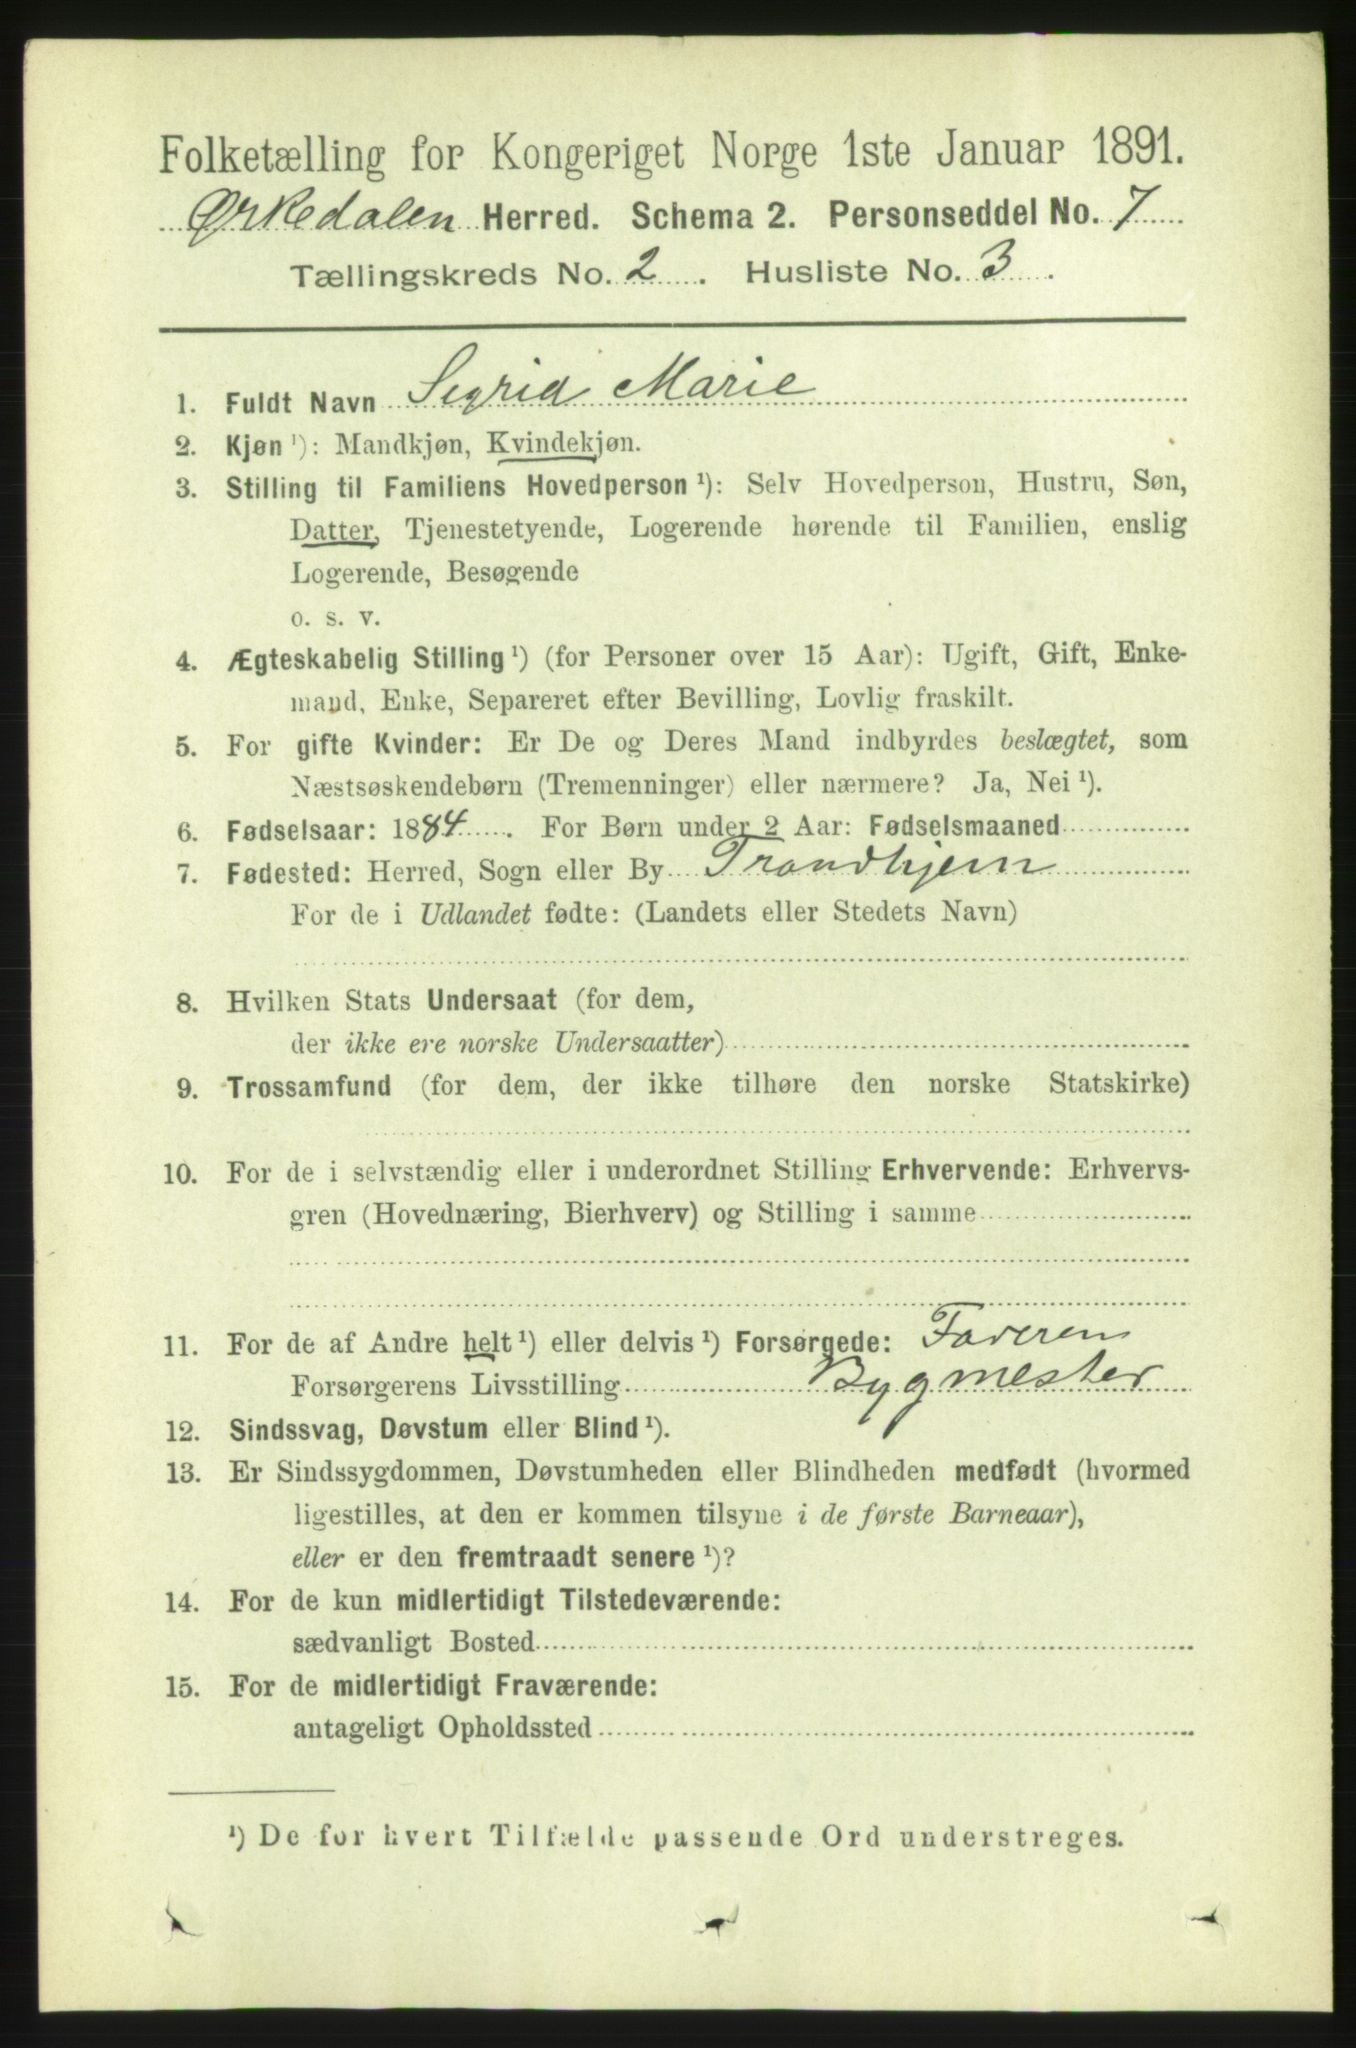 Folketælling for Kongeriget Norge 1ste Januar 1891.
Ørkedalen Herred. Schema 2. Personseddel No. 7
Tællingskreds No. 2. Husliste No. 3.
1. Fuldt Navn Sigrid Marie
2. Kjøn ¹): Mandkjøn, Kvindekjøn.
3. Stilling til Familiens Hovedperson ¹): Selv Hovedperson, Hustru, Søn,
Datter, Tjenestetyende, Logerende hørende til Familien, enslig
Logerende, Besøgende
o. s. v.
4. Ægteskabelig Stilling ¹) (for Personer over 15 Aar): Ugift, Gift, Enke-
mand, Enke, Separeret efter Bevilling, Lovlig fraskilt.
5. For gifte Kvinder: Er De og Deres Mand indbyrdes beslægtet, som
Næstsøskendebørn (Tremenninger) eller nærmere? Ja, Nei ¹).
6. Fødselsaar: 1884. For Børn under 2 Aar: Fødselsmaaned
7. Fødested: Herred, Sogn eller By Trondhjem
For de i Udlandet fødte: (Landets eller Stedets Navn)
8. Hvilken Stats Undersaat (for dem,
der ikke ere norske Undersaatter)
9. Trossamfund (for dem, der ikke tilhøre den norske Statskirke)
10. For de i selvstændig eller i underordnet Stilling Erhvervende: Erhvervs-
gren (Hovednæring, Bierhverv) og Stilling i samme
11. For de af Andre helt ¹) eller delvis ¹) Forsørgede: Faderen
Forsørgerens Livsstilling Bygmester
12. Sindssvag, Døvstum eller Blind ¹).
13. Er Sindssygdommen, Døvstumheden eller Blindheden medfødt (hvormed
ligestilles, at den er kommen tilsyne i de første Barneaar),
eller er den fremtraadt senere ¹)?
14. For de kun midlertidigt Tilstedeværende:
sædvanligt Bosted
15. For de midlertidigt Fraværende:
antageligt Opholdssted
¹) De for hvert Tilfælde passende Ord understreges.